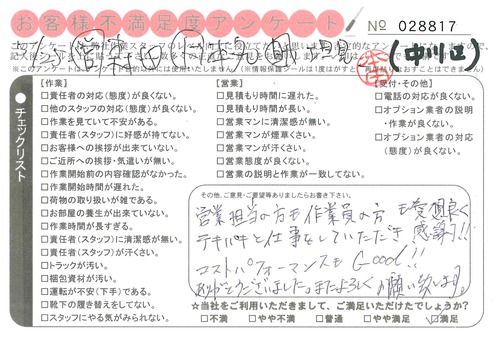 お客様不満足度アンケート
№ 028817
(中川区)
チェックリスト
【作業】
□責任者の対応(態度)が良くない。
□他のスタッフの対応(態度)が良くない。
□作業を見ていて不安がある。
□責任者(スタッフ)に好感が持てない。
□お客様への挨拶が出来ていない。
□ご近所への挨拶・気遣いが無い。
□作業開始前の内容確認がなかった。
□作業開始時間が遅れた。
□荷物の取り扱いが雑である。
□お部屋の養生が出来ていない。
□作業時間が長すぎる。
□責任者(スタッフ)に清潔感が無い。
□責任者(スタッフ)が汗くさい。
□トラックが汚い。
□梱包資材が汚い。
□運転が不安(下手)である。
□靴下の履き替えをしてない。
□スタッフにやる気がみられない。
【営業】
□見積もり時間に遅れた。
□見積もり時間が長い。
□営業マンに清潔感が無い。
□営業マンが煙草くさい。
□営業マンが汗くさい。
□営業態度が良くない。
□営業の説明と作業が一致してない。
【受付・その他】
□電話の対応が良くない。
□オプション業者の説明
・作業が良くない。
□オプション業者の対応
(態度)が良くない。
その他、ご意見・ご要望等ありましたらお書き下さい。
営業担当の方も作業員の方も愛想良く
テキパキと仕事をしていただき感謝!!
コストパフォーマンスもGood!!
ありがとうございました。またよろしくお願い致します。
☆当社をご利用いただきまして、ご満足いただけたでしょうか?
□不満 □やや不満 □普通 □やや満足 □満足